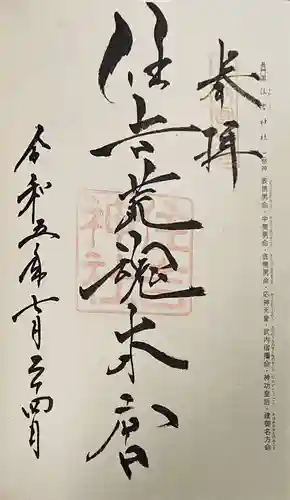 長門國住吉神社 御祭神 表筒男命・中筒男命・底筒男命・応神天皇・武内宿禰命・神功皇后・建御名方命
奉拝
住吉荒魂本宮
住吉神社
令和五年七月二十四日